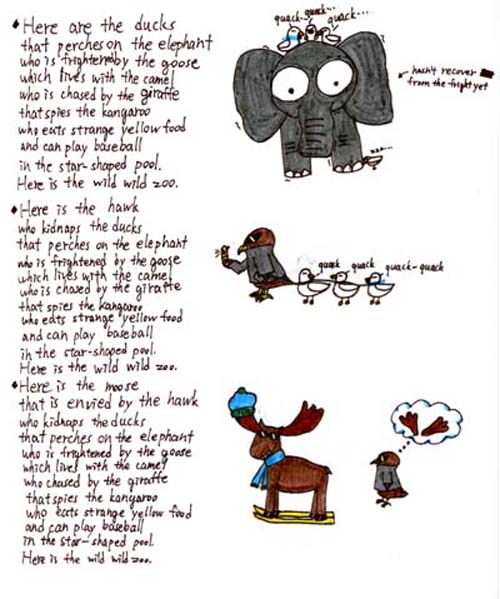 ♦Here are the ducks
that perches on the elephant
who is frightened by the goose
which lives with the camel
who is chased by the giraffe
that spies the kangaroo
who eats strange yellow food
and can play baseball
in the star-shaped pool.
Here is the wild wild zoo.
quack...
quack...
quack...
hasn't recover
from the fright yet
zzz...
♦Here is the hawk
who kidnaps the ducks
that perches on the elephant
who is frightened by the goose
which lives with the camel
who is chased by the giraffe
that spies the kangaroo
who eats strange yellow food
and can play baseball
in the star-shaped pool.
Here is the wild wild zoo.
quack
quack
quack-quack
♦Here is the moose
that is envied by the hawk
who kidnaps the ducks
that perches on the elephant
who is frightened by the goose
which lives with the camel
who chased by the giraffe
that spies the kangaroo
who eats strange yellow food
and can play baseball
in the star-shaped pool.
Here is the wild wild zoo.